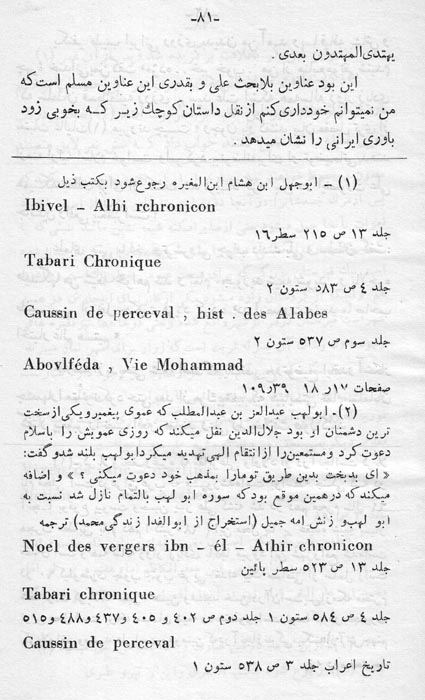 -۸۱-
یهتدی المهتدون بعدی .
این بود عناوین بلابحث علی و بقدری این عناوین مسلم است که
من نمیتوانم خودداری کنم از نقل داستان کوچك زیر که بخوبی زود
باوری ایرانی را نشان میدهد .
(۱) - ابوجهل ابن هشام ابن المغیره رجوع شود بکتب ذیل
Ibivel - Alhi rchronicon
جلد ۱۳ ص ۲۱۵ سطر ۱۶
Tabari Chronique
جلد ٤ ص ۵۸۳ ستون ۲
Caussin de perceval , hist . des Alabes
جلد سوم ص ۵۳۷ ستون ۲
Abovlféda , Vie Mohammad
صفحات ۱۷ر ۱۸ ر۳۹ ر۱۰۹
(۲) - ابولهب عبدالعز بن عبدالمطلب که عموی پیغمبر و یکی از سخت
ترین دشمنان او بود جلال‌الدین نقل میکند که روزی عمویش را باسلام
دعوت کرد و مستمعین را از انتقام الهی تهدید میکرد ابولهب بلند شد و گفت:
« ای بدبخت بدین طریق تو مارا بمذهب خود دعوت میکنی ؟ » و اضافه
میکند که در همین موقع بود که سوره ابو لهب بالتمام نازل شد نسبت به
ابو لهب و زنش امه جمیل (استخراج از ابوالفدا زندگی محمد) ترجمه
Noel des vergers ibn - él - Athir chronicon
جلد ۱۳ ص ۵۲۳ سطر پائین
Tabari chronique
جلد ٤ ص ۵۸٤ ستون ۱ جلد دوم ص ٤۰۲ و ٤۰۵ و ٤۳۷ و ٤۸۸ و ۵۱۵
Caussin de perceval
تاریخ اعراب جلد ۳ ص ۵۳۸ ستون ۱